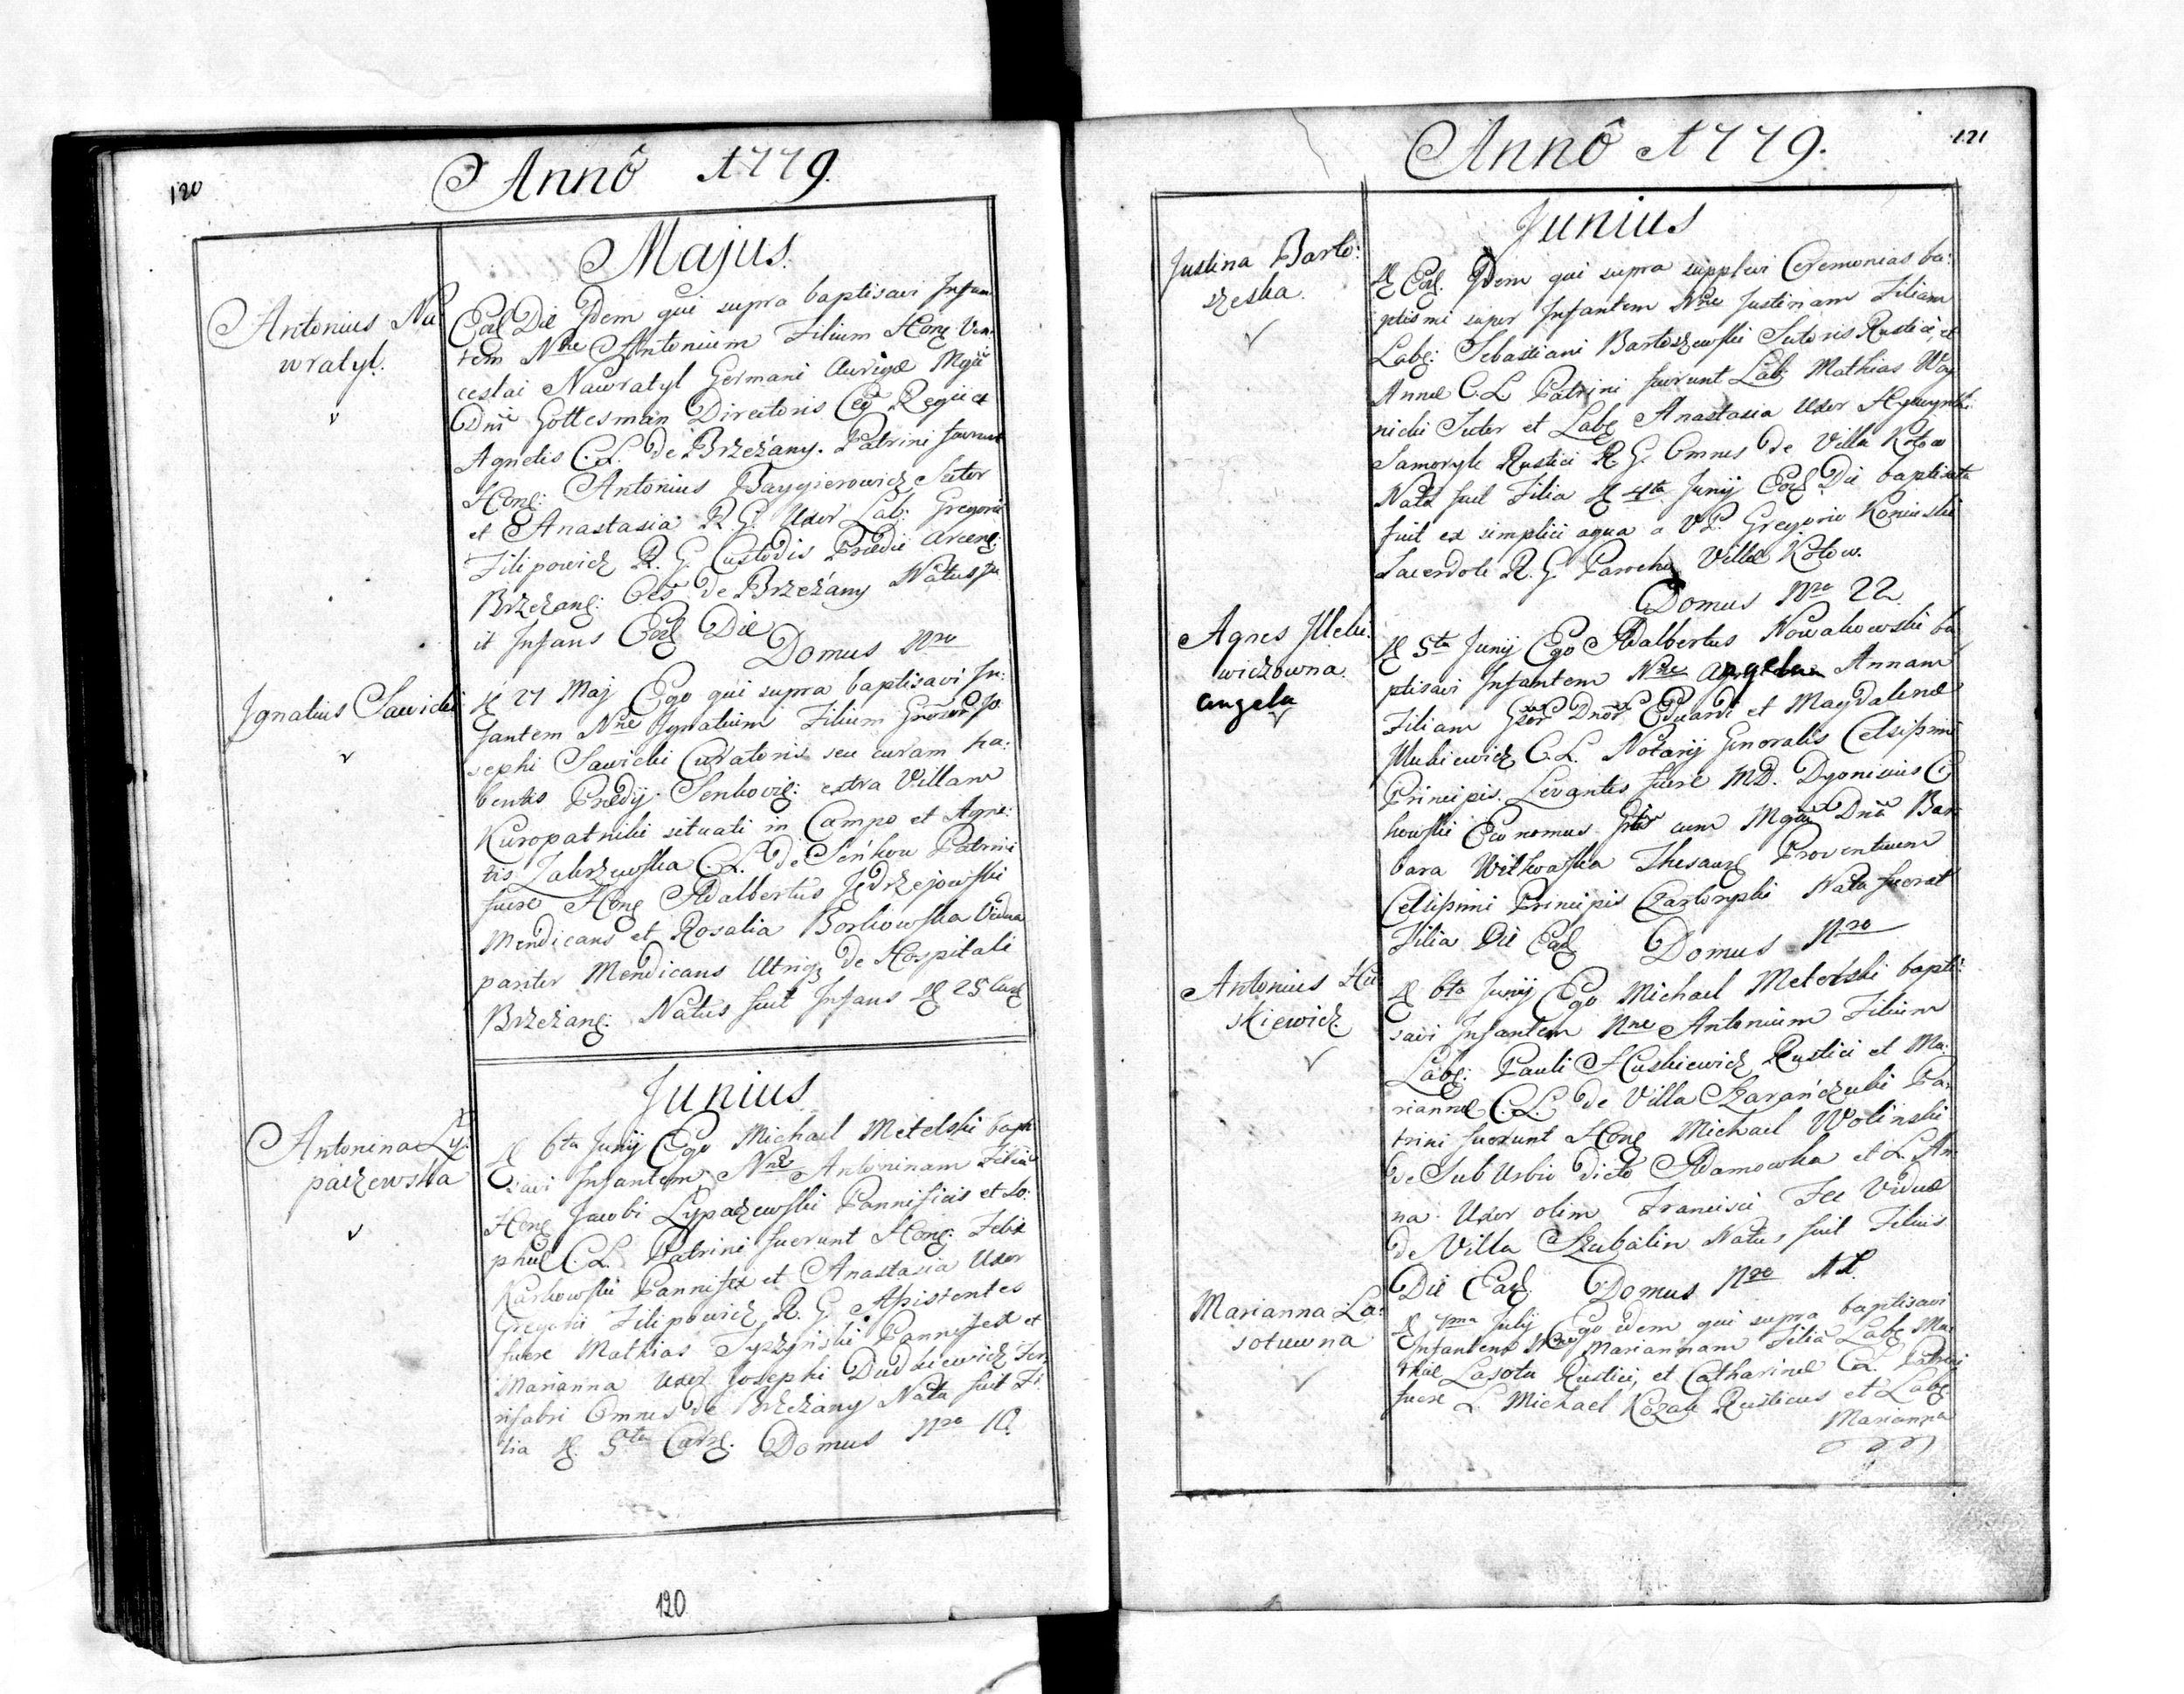 120
Annô 1779.
Majus.
Antonius Na
wratyl.
Ead Die Idem qui supra baptisavi Infan
tem Nne Antonium Filium Hon: Ven
ceslai Nawratyl Germani Aurigæ Mgci
Dni Gottesman Directoris Regii et
Agnetis C.L. de Brzeżany. Patrini fuerunt
Hon: Antonius Sutor
et Anastasia R.G. Uxor Lab: Gregorii
Filipowicz R.G. Custodis Prædii
Brzezan: de Brzeżany Natus fu
it Infans Ead Die
Domus Nro
Ignatius Sawicki
d 27 Maj Ego qui supra baptisavi In:
fantem Nne Ignatium Filium Jo
sephi Sawicki Curatoris seu curam ha:
bentis Prædij extra Villam
Kuropatniki situati in Campo et Agne:
tis Zakrzewska C.L. de Patrini
fuere Hon Adalbertus Jędrzejowski
Mendicans et Rosalia Borkowska Vidua
pariter Mendicans Utriq de Hospitali
Brzeżan: Natus fuit Infans d 25
Junius
Antonina Ly:
paczewska
d 6ta Junij Ego Michael Metelski bapti
savi Infantem Nne Antoninam Filia
Hon Jacobi Lypaczewski Pannificis et So:
phiæ C.L. Patrini fuerunt Hon: Felix
Karkowski Pannifex et Anastasia Uxor
Gregorii Filipowicz R.G. Assistentes
fuere Mathias Pannifex et
Marianna Uxor Josephi Dudkiewicz Fer
rifabri Omnes de Brzeżany Nata fuit Fi
lia d. 5ta Domus Nro 10.
120
121
Annô 1779.
Junius
Justina Barto:
szeska.
d Ead. Idem qui supra supplevi Ceremonias ba:
ptismi super Infantem Nne Justinam Filiam
Lab: Sebastiani Bartoszewski Sutoris Rustici, et
Annæ C.L. Patrini fuerunt Lab Mathias Woy
nicki Sutor et Lab Anastasia Uxor
Samoryk Rustici R.G. Omnes de Villa Kotow
Nata fuit Filia d 4ta Junij Ead Die baptisata
fuit ex simplici aqua a V.P. Gregorio
Sacerdote R.G. Parocho Villæ Kotow.
Domus Nro 22.
Agnes Illukie
wiczowna.
angela
d 5ta Junij Ego Adalbertus Nowakowski ba
ptisavi Infantem Nne angelam Annam
Filiam Dnor Eduardi et Magdalenæ
C.L. Notarij Generalis Celsissimi
Principis. Levantes fuere MD. Dyonisius
Economus cum Dna Bar
bara Witkowska Thesaur Proventuum
Celsissimi Principis Czartoryski Nata fuerat
Filia Die Ead Domus Nro
Antonius Hu
skiewicz
d 6ta Junij Ego Michael Metelski bapti:
savi Infantem Nne Antonium Filium
Lab: Pauli Huskiewicz Rustici et Ma:
riannæ C.L. de Villa Szarańczuki Pa
trini fuerunt Hon Michael Wolinski
de Sub Urbio dicto Adamowka et L. An
na Uxor olim Francisci Vidua
de Villa Szubalin Natus fuit Filius
Die Ead. Domus Nro
Marianna La:
sotuwna
d 1ma Julij Ego idem qui supra baptisavi
Infantem Nne Mariannam Filia Lab Ma
thiæ Lasota Rustici, et Catharinæ C.L. Patrini
fuere L. Michael Kozak Rusticus et Lab
Marianna